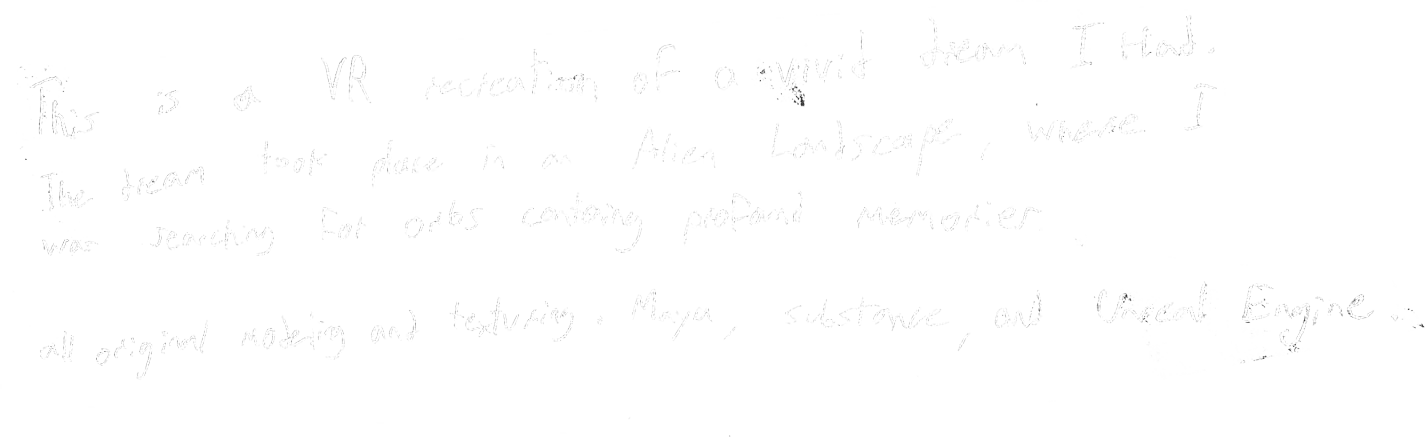 This is a VR recreation of a vivid dream I Had.
The dream took place in an Alien Landscape, where I
was searching For orbs containg profound memories.
all original modeling and texturing. Maya, substance, and Unreal Engine.